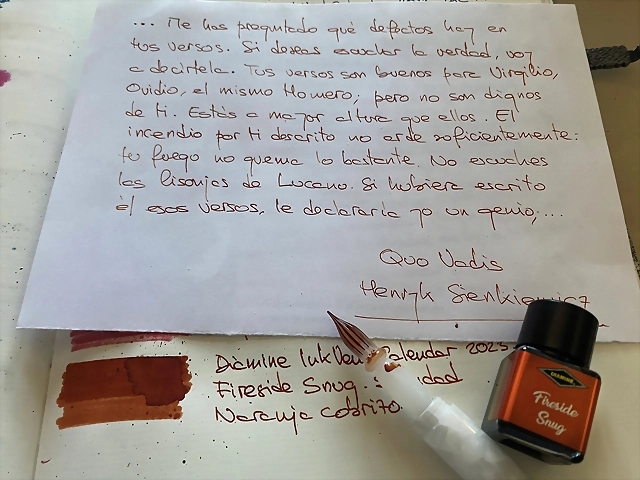 ... Me has preguntado qué defectos hay en
tus versos. Si deseas escuchar la verdad, voy
a decírtela. Tus versos son buenos para Virgilio,
Ovidio, el mismo Homero; pero no son dignos
de ti. Estás a mayor altura que ellos. El
incendio por ti descrito no arde suficientemente:
tu fuego no quema lo bastante. No escuches
las lisonjas de Lucano. Si hubiera escrito
él esos versos, le declararía yo un genio;....
Quo Vadis
Henryk Sienkiewicz
Diamine InkVent Calendar 2025
Fireside Snug
Naranja cobrizo
DIAMINE
Fireside
Snug